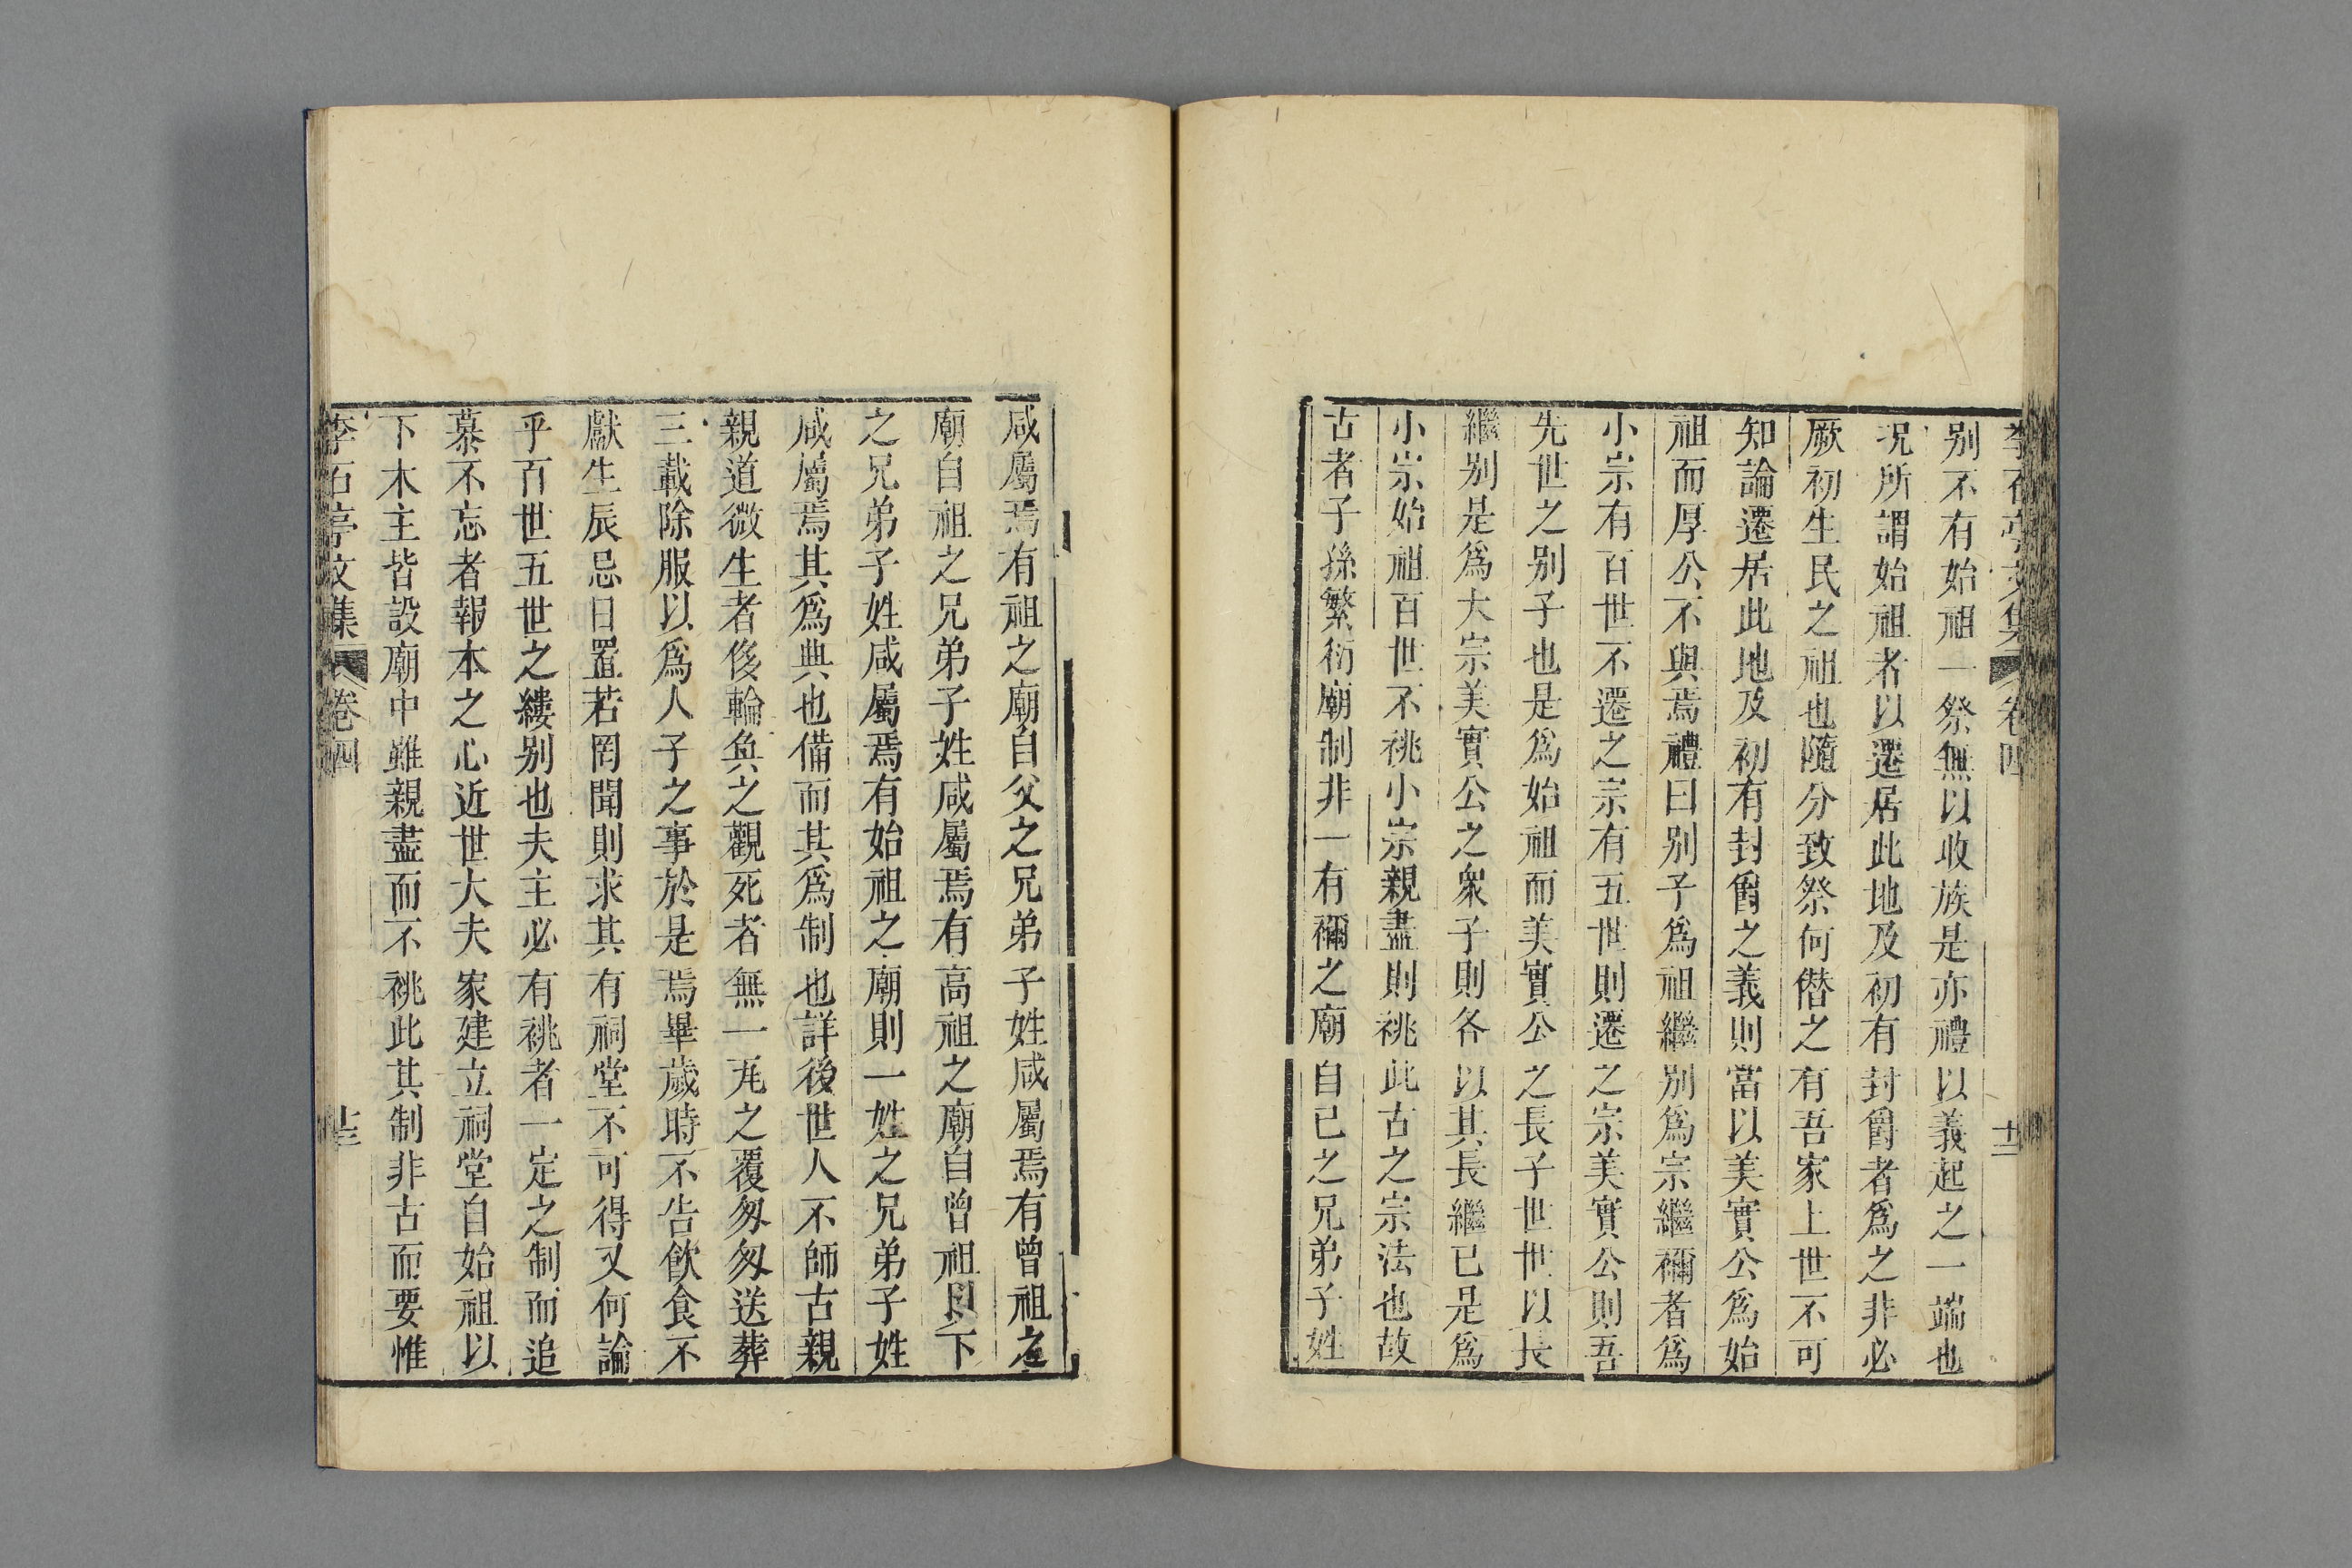 李石亭文集 卷四 十二
别不有始祖一祭無以收族是亦禮以義起之一端也
况所謂始祖者以遷居此地及初有封爵者爲之非必
厥初生民之祖也隨分致祭何僣之有吾家上世不可
知論遷居此地及初有封爵之義則當以美實公爲始
祖而厚公不與焉禮曰别子爲祖繼别爲宗繼禰者爲
小宗有百世不遷之宗有五世則遷之宗美實公則吾
先世之别子也是爲始祖而美實公之長子世世以長
繼别是爲大宗美實公之衆子則各以其長繼已是爲
小宗始祖百世不祧小宗親盡則祧此古之宗法也故
古者子孫繁衍廟制非一有禰之廟自已之兄弟子姓
咸屬焉有祖之廟自父之兄弟子姓咸屬焉有曾祖之
廟自祖之兄弟子姓咸屬焉有高祖之廟自曾祖以下
之兄弟子姓咸屬焉有始祖之廟則一姓之兄弟子姓
咸屬焉其爲典也備而其爲制也詳後世人不師古親
親道微生者侈輪奐之觀死者無一瓦之覆匆匆送葬
三載除服以爲人子之事於是焉畢歲時不告飲食不
獻生辰忌日置若罔聞則求其有祠堂不可得又何論
乎百世五世之縷别也夫主必有祧者一定之制而追
慕不忘者報本之心近世大夫家建立祠堂自始祖以
下木主皆設廟中雖親盡而不祧此其制非古而要惟
李石亭文集 卷四 十三